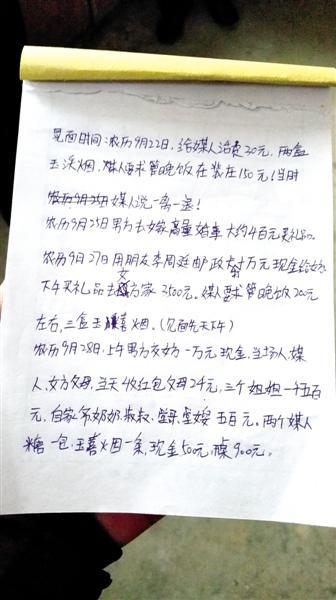 见面时间:农历9月22日,给媒人话费30元,两盒
玉溪烟,媒人要求管晚饭在 在150元(当时
媒人说一离一退!
农历9月25日男方去嫁 商量婚事大约4百元买礼品。
农历9月27日用朋友李 庭邮政 十万元现金给
下午买礼品去女方家3500元。媒人要求管晚饭200元
左右,三盒玉 烟。(见面先天下午)
农历9月28日,上午男方交女方一万元现金,当场人,媒
人,女方父母,当天4收红包父母24元,三个姐姐一千五百
元,自家爷奶奶, 叔, 五百元。两个媒人
糖一包,玉 烟一条,现金50元, 900元。